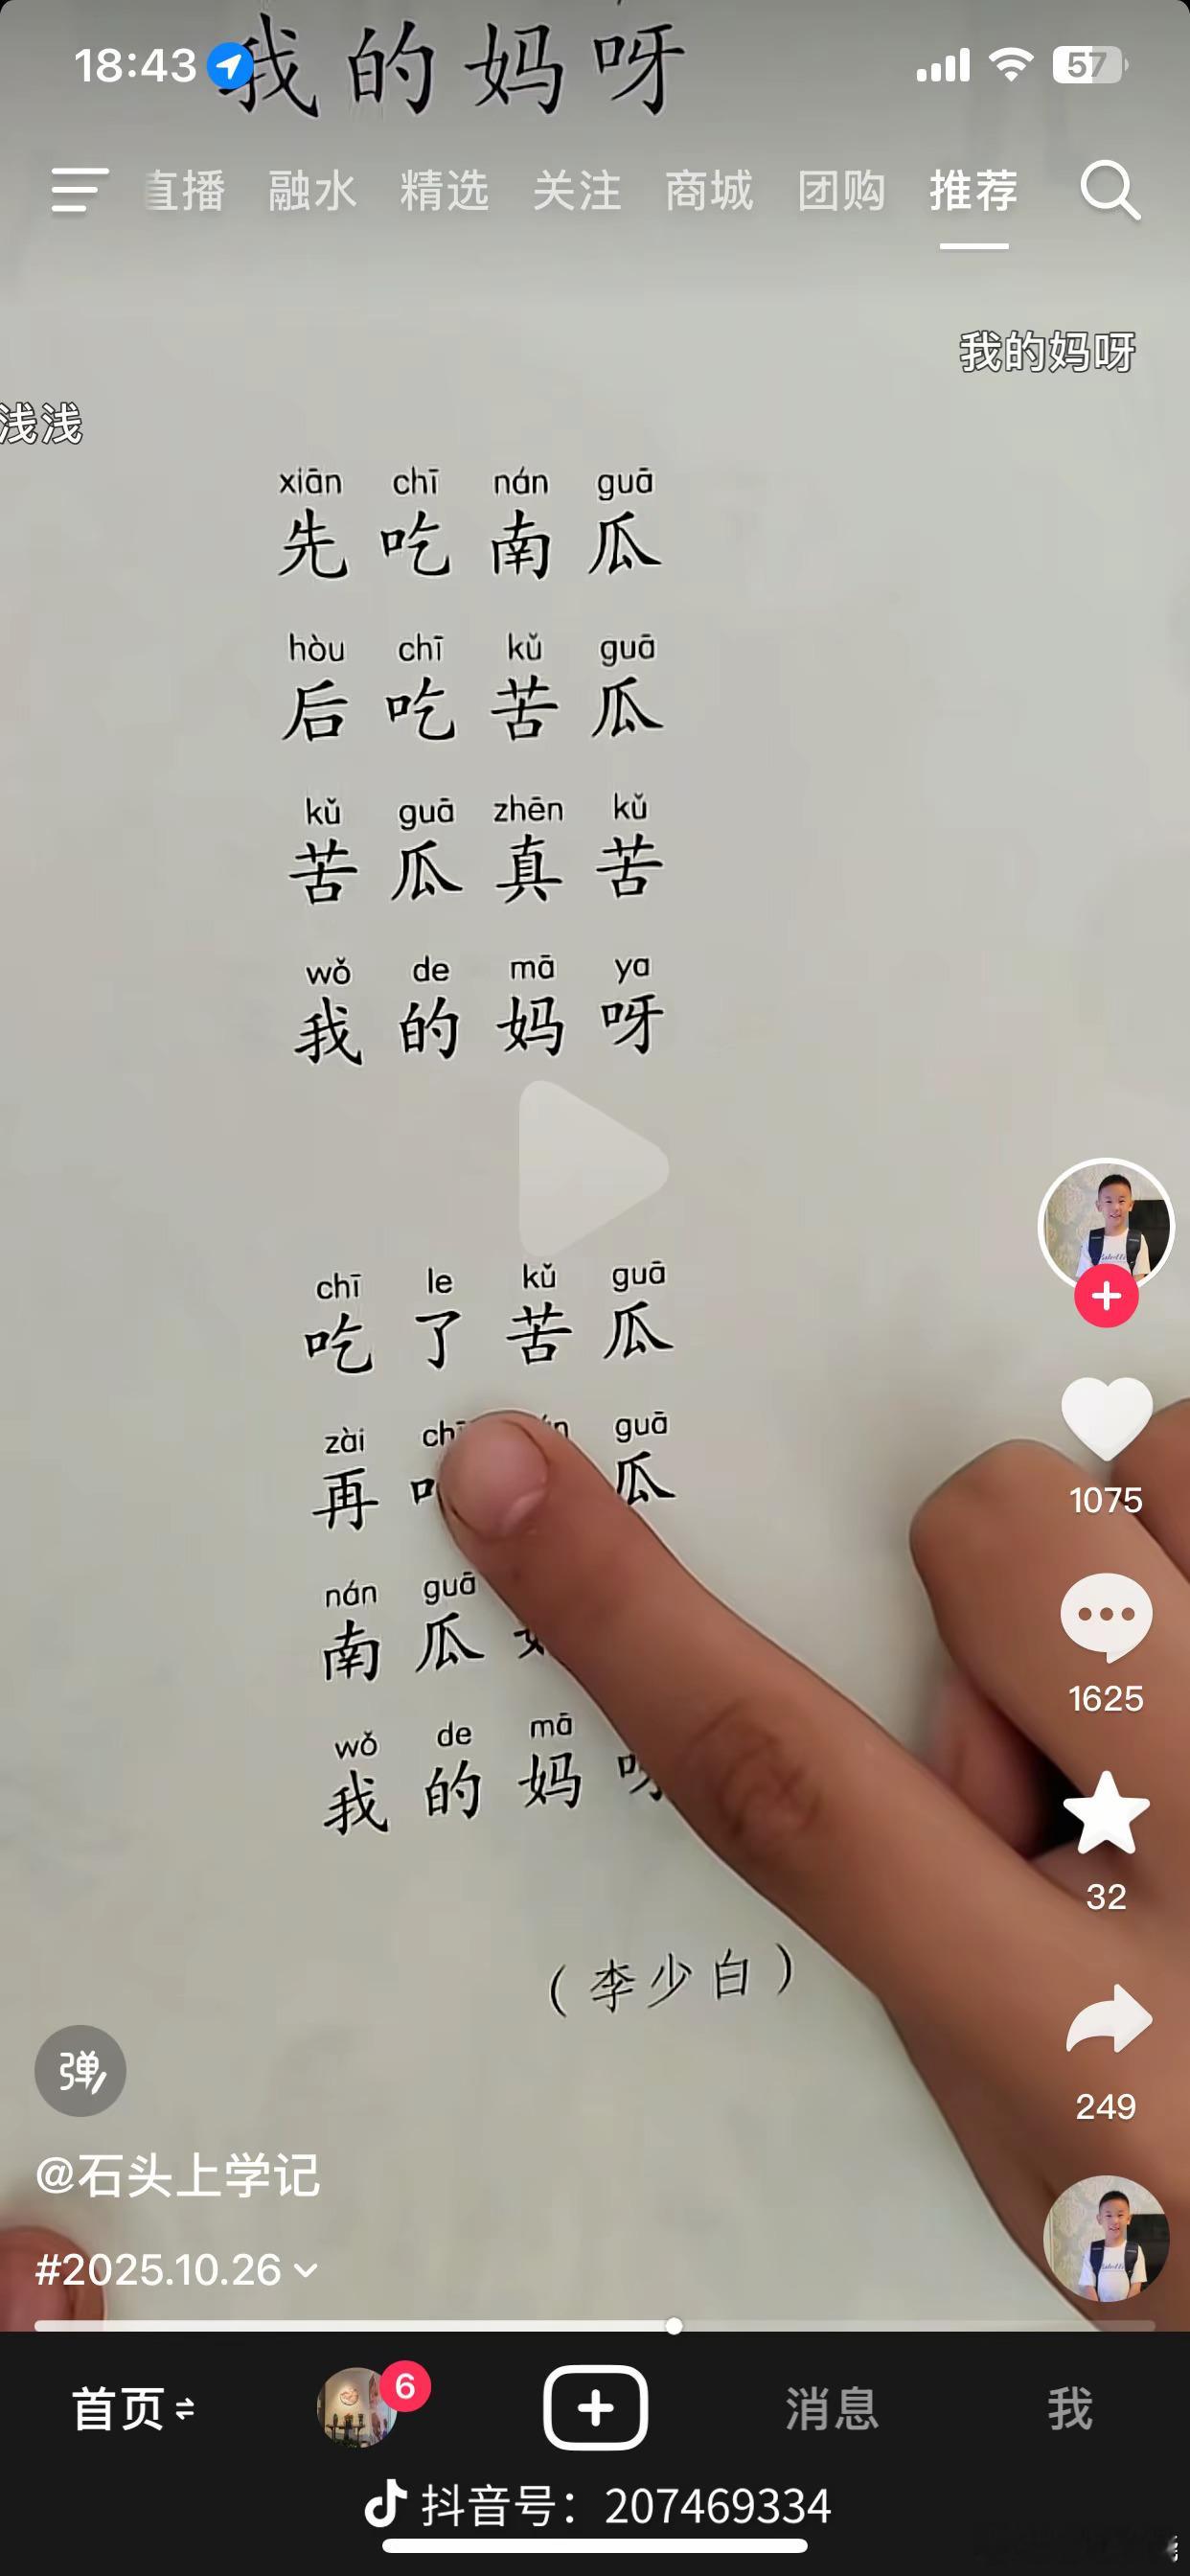 我的妈呀
18:43
57
直播 融水 精选 关注 商城 团购 推荐
我的妈呀
浅浅
xiān chī nán guā
先吃南瓜
hòu chī kǔ guā
后吃苦瓜
kǔ guā zhēn kǔ
苦瓜真苦
wǒ de mā ya
我的妈呀
chī le kǔ guā
吃了苦瓜
zài guā
再 瓜
nán guā
南瓜
wǒ de mā
我的妈
(李少白)
弹
@石头上学记
#2025.10.26
1075
1625
32
249
首页 6 消息 我
抖音号：207469334